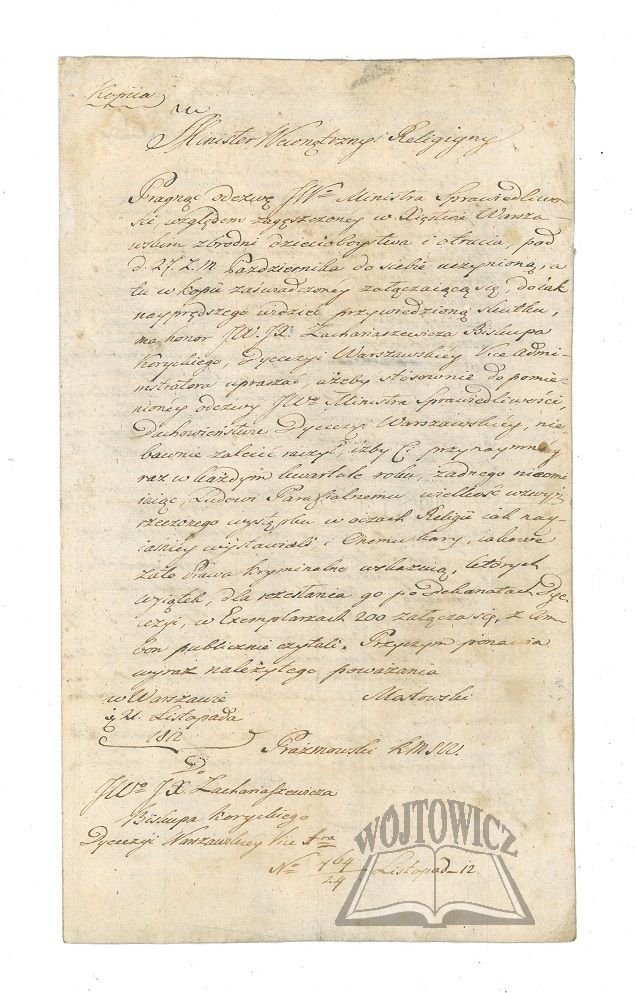 Kopiia
Minister Wewnętrzny i Religiyny
Pragnąc odezwę JWo Ministra Sprawiedliwo-
ści, względem zagęszczoney w Xięstwie Warsza-
wskim zbrodni dzieciobóystwa i otrucia, pod
d. 27. Z. m Października do siebie uczynioną, a
tu w kopii zaświadczoney załączaiącą się, do iak
nayprędszego widzieć przywiedzioną skutku,
ma honor JW. JX. Zachariaszewicza Biskupa
Koryckiego, Dyecezyi Warszawskiéy Vice Admi-
nistratora upraszać, ażeby stósownie do pomie-
nionéy odezwy JWo Ministra Sprawiedliwości,
Duchowieństwu Dyecezyi Warszawskiey, nie-
bawnie zalecić raczył, iżby Ci przynaymniey
raz w każdym kwartale roku, żadnego nieomi-
iaiąc, Ludowi Parafialnemu wielkość wzwyż
rzeczonego występku w oczach Religii iak nay-
iaśniey wystawiali, i Onemu kary, iakowe
zato Prawa kryminalne wskazuią, których
wyiątek, dla rozesłania go po Dekanatach Dye-
cezyi, w Exemplarzach 200 załącza się, z Am-
bon publicznie czytali. Przyczym ponawia
wyraz należytego poważania
w Warszawie Matowski
d. 21. Listopada
1812
Prazmowski
Do
JWo JX. Zachariaszewicza
Biskupa Koryckiego
Dyecezyi Warszawskiéy Vice Ara
No 764/24 Listopad 12
WÓJTOWICZ